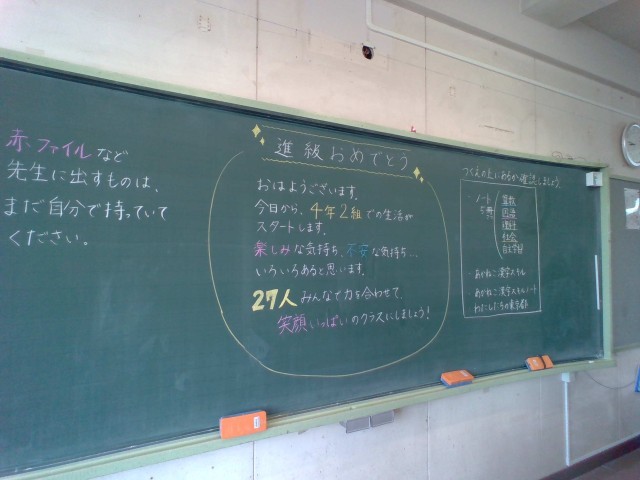 赤ファイルなど
先生に出すものは、
まだ自分で持っていて
ください。
進級おめでとう
おはようございます。
今日から、4年2組での生活が
スタートします。
楽しみな気持ち、不安な気持ち…
いろいろあると思います。
27人みんなで力を合わせて、
笑顔いっぱいのクラスにしましょう!
つくえの上にあるか確認しましょう。
・ノート
算数
国語
社会
自主学習
・あかねこ漢字スキル
あかねこ漢字スキルノート
わたしたちの東京都